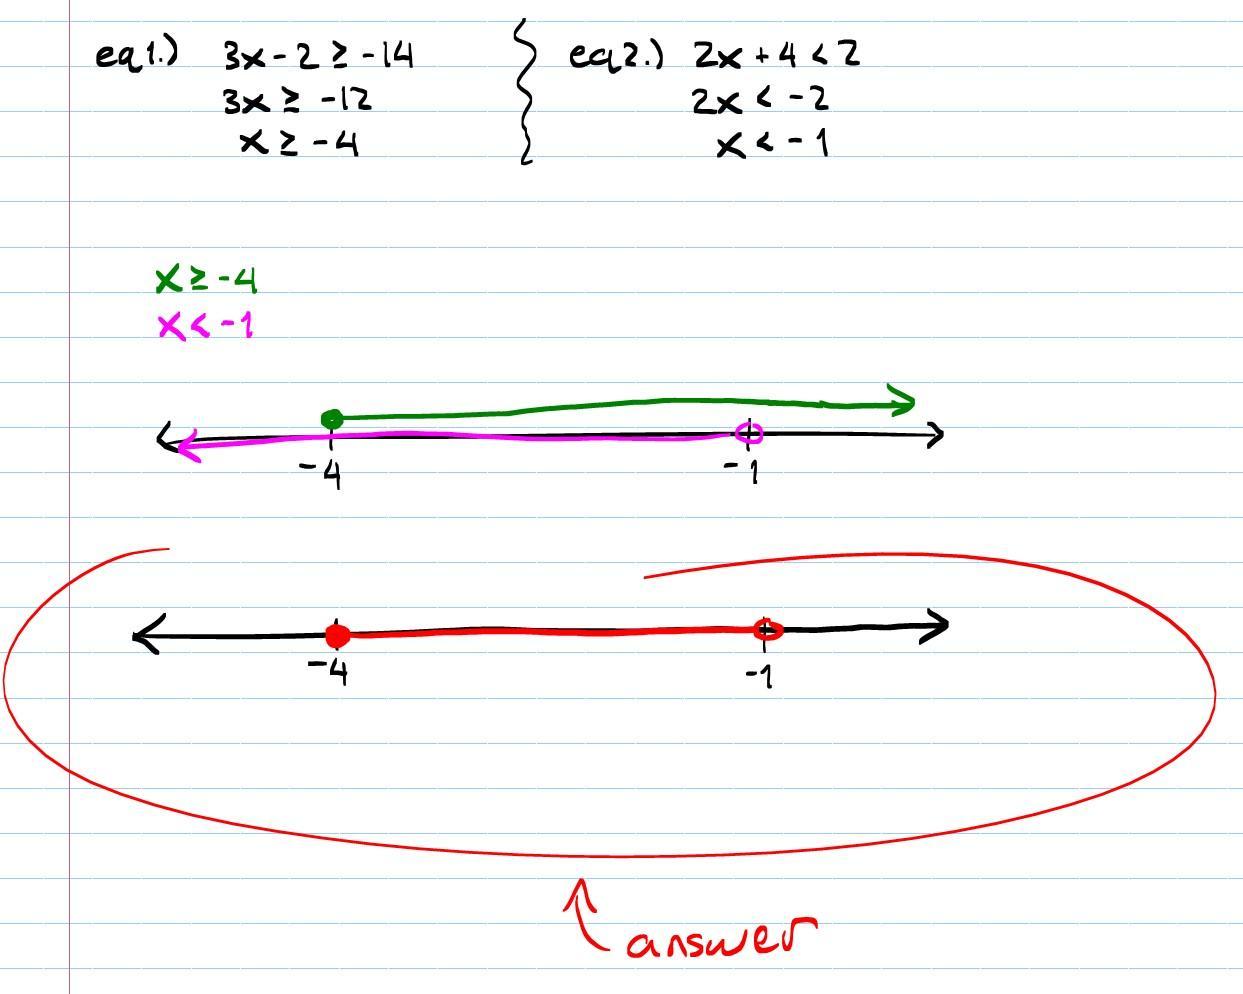 eq1.) 3x - 2 ≥ -14
3x ≥ -12
x ≥ -4
eq2.) 2x + 4 < 2
2x < -2
x < -1
x ≥ -4
x < -1
-4 -1
-4 -1
answer